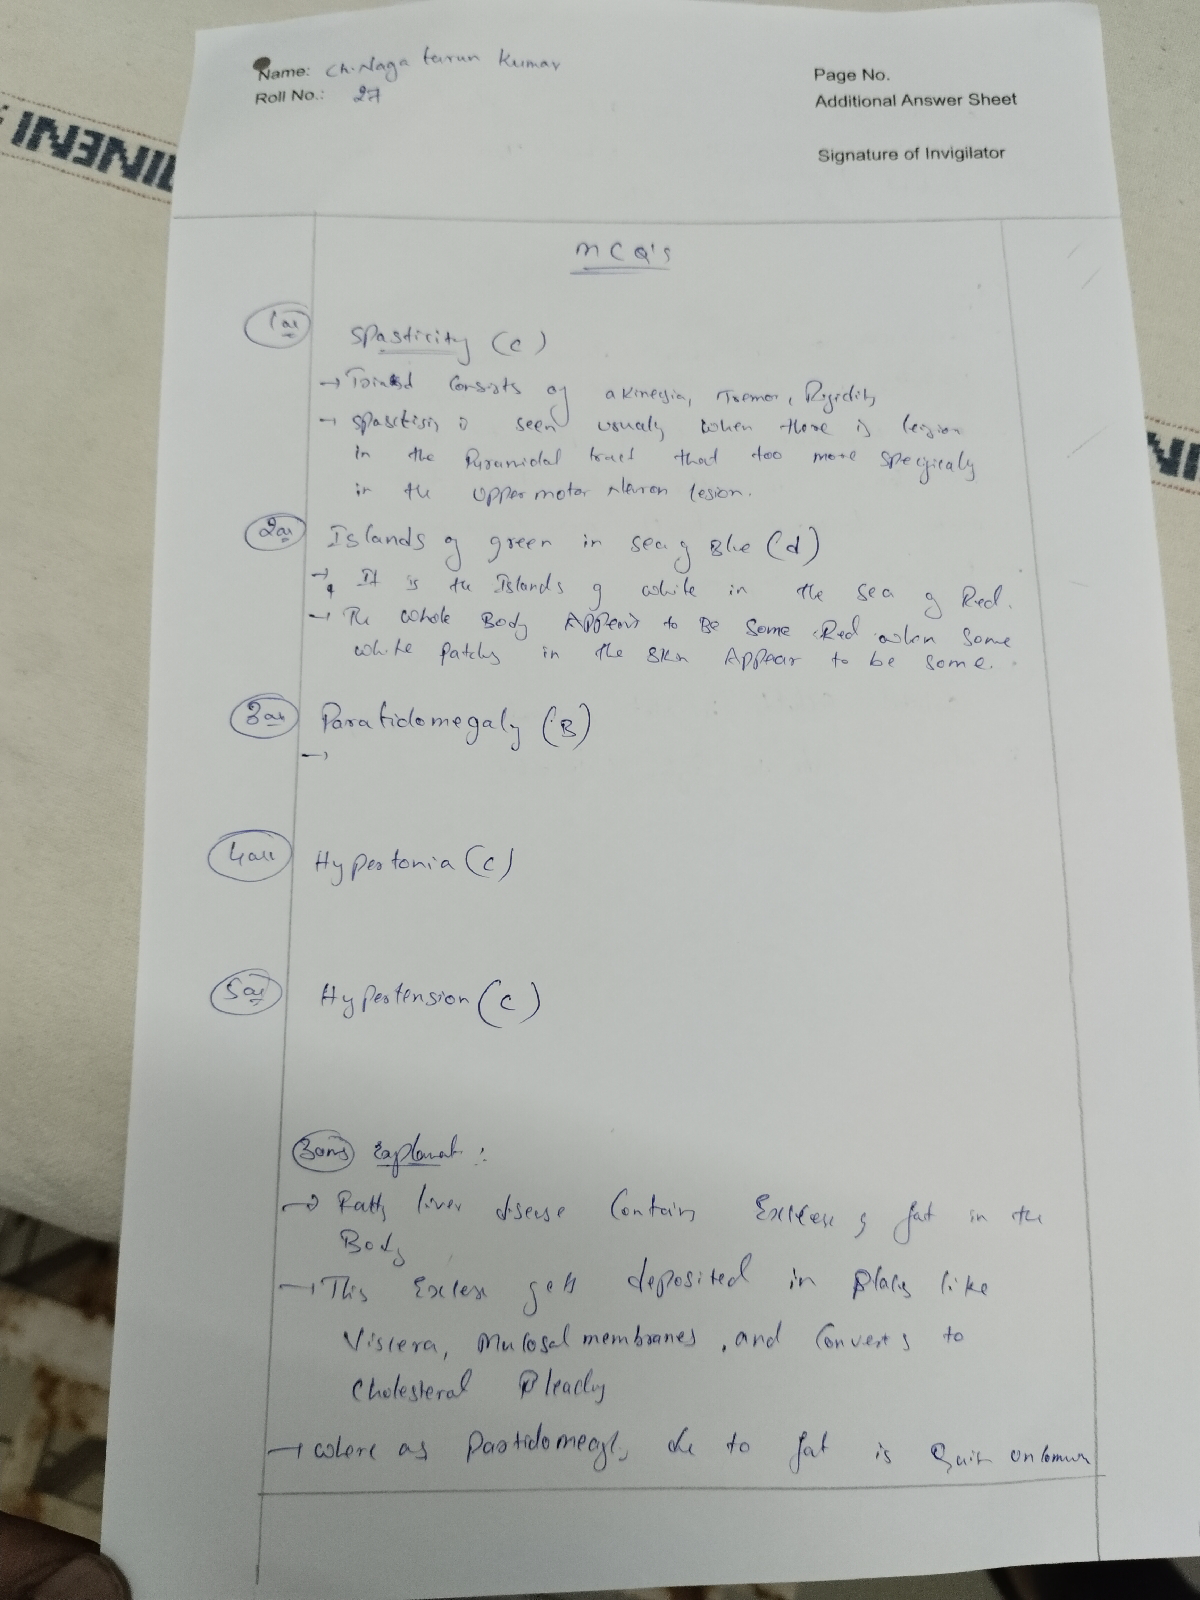 Name: Ch. Naga tarun Kumar
Roll No.: 27
Page No.
Additional Answer Sheet
Signature of Invigilator
MCQ's
1 ans
Spasticity (c)
→ consists of akinesia, Tremor, Rigidity
→ is seen usualy when there is lesion
in the Pyramidal tract that too more specificaly
in the upper motor Neuron lesion.
2 ans Islands of green in sea of Blue (d)
→ It is the Islands of white in the sea of Red.
→ The whole Body Appears to Be Some Red when Some
white patches in the Skin Appear to be some.
3 ans Parotidomegaly (B)
→
4 ans Hypertonia (c)
5 ans Hypertension (c)
3 ans Explanat :
→ Fatty liver disease Contains Excess of fat in the
Body
→ This Excess gets deposited in places like
Viscera, Mucosal membranes, and Converts to
Cholesteral
→ where as due to fat is
INENI
NI